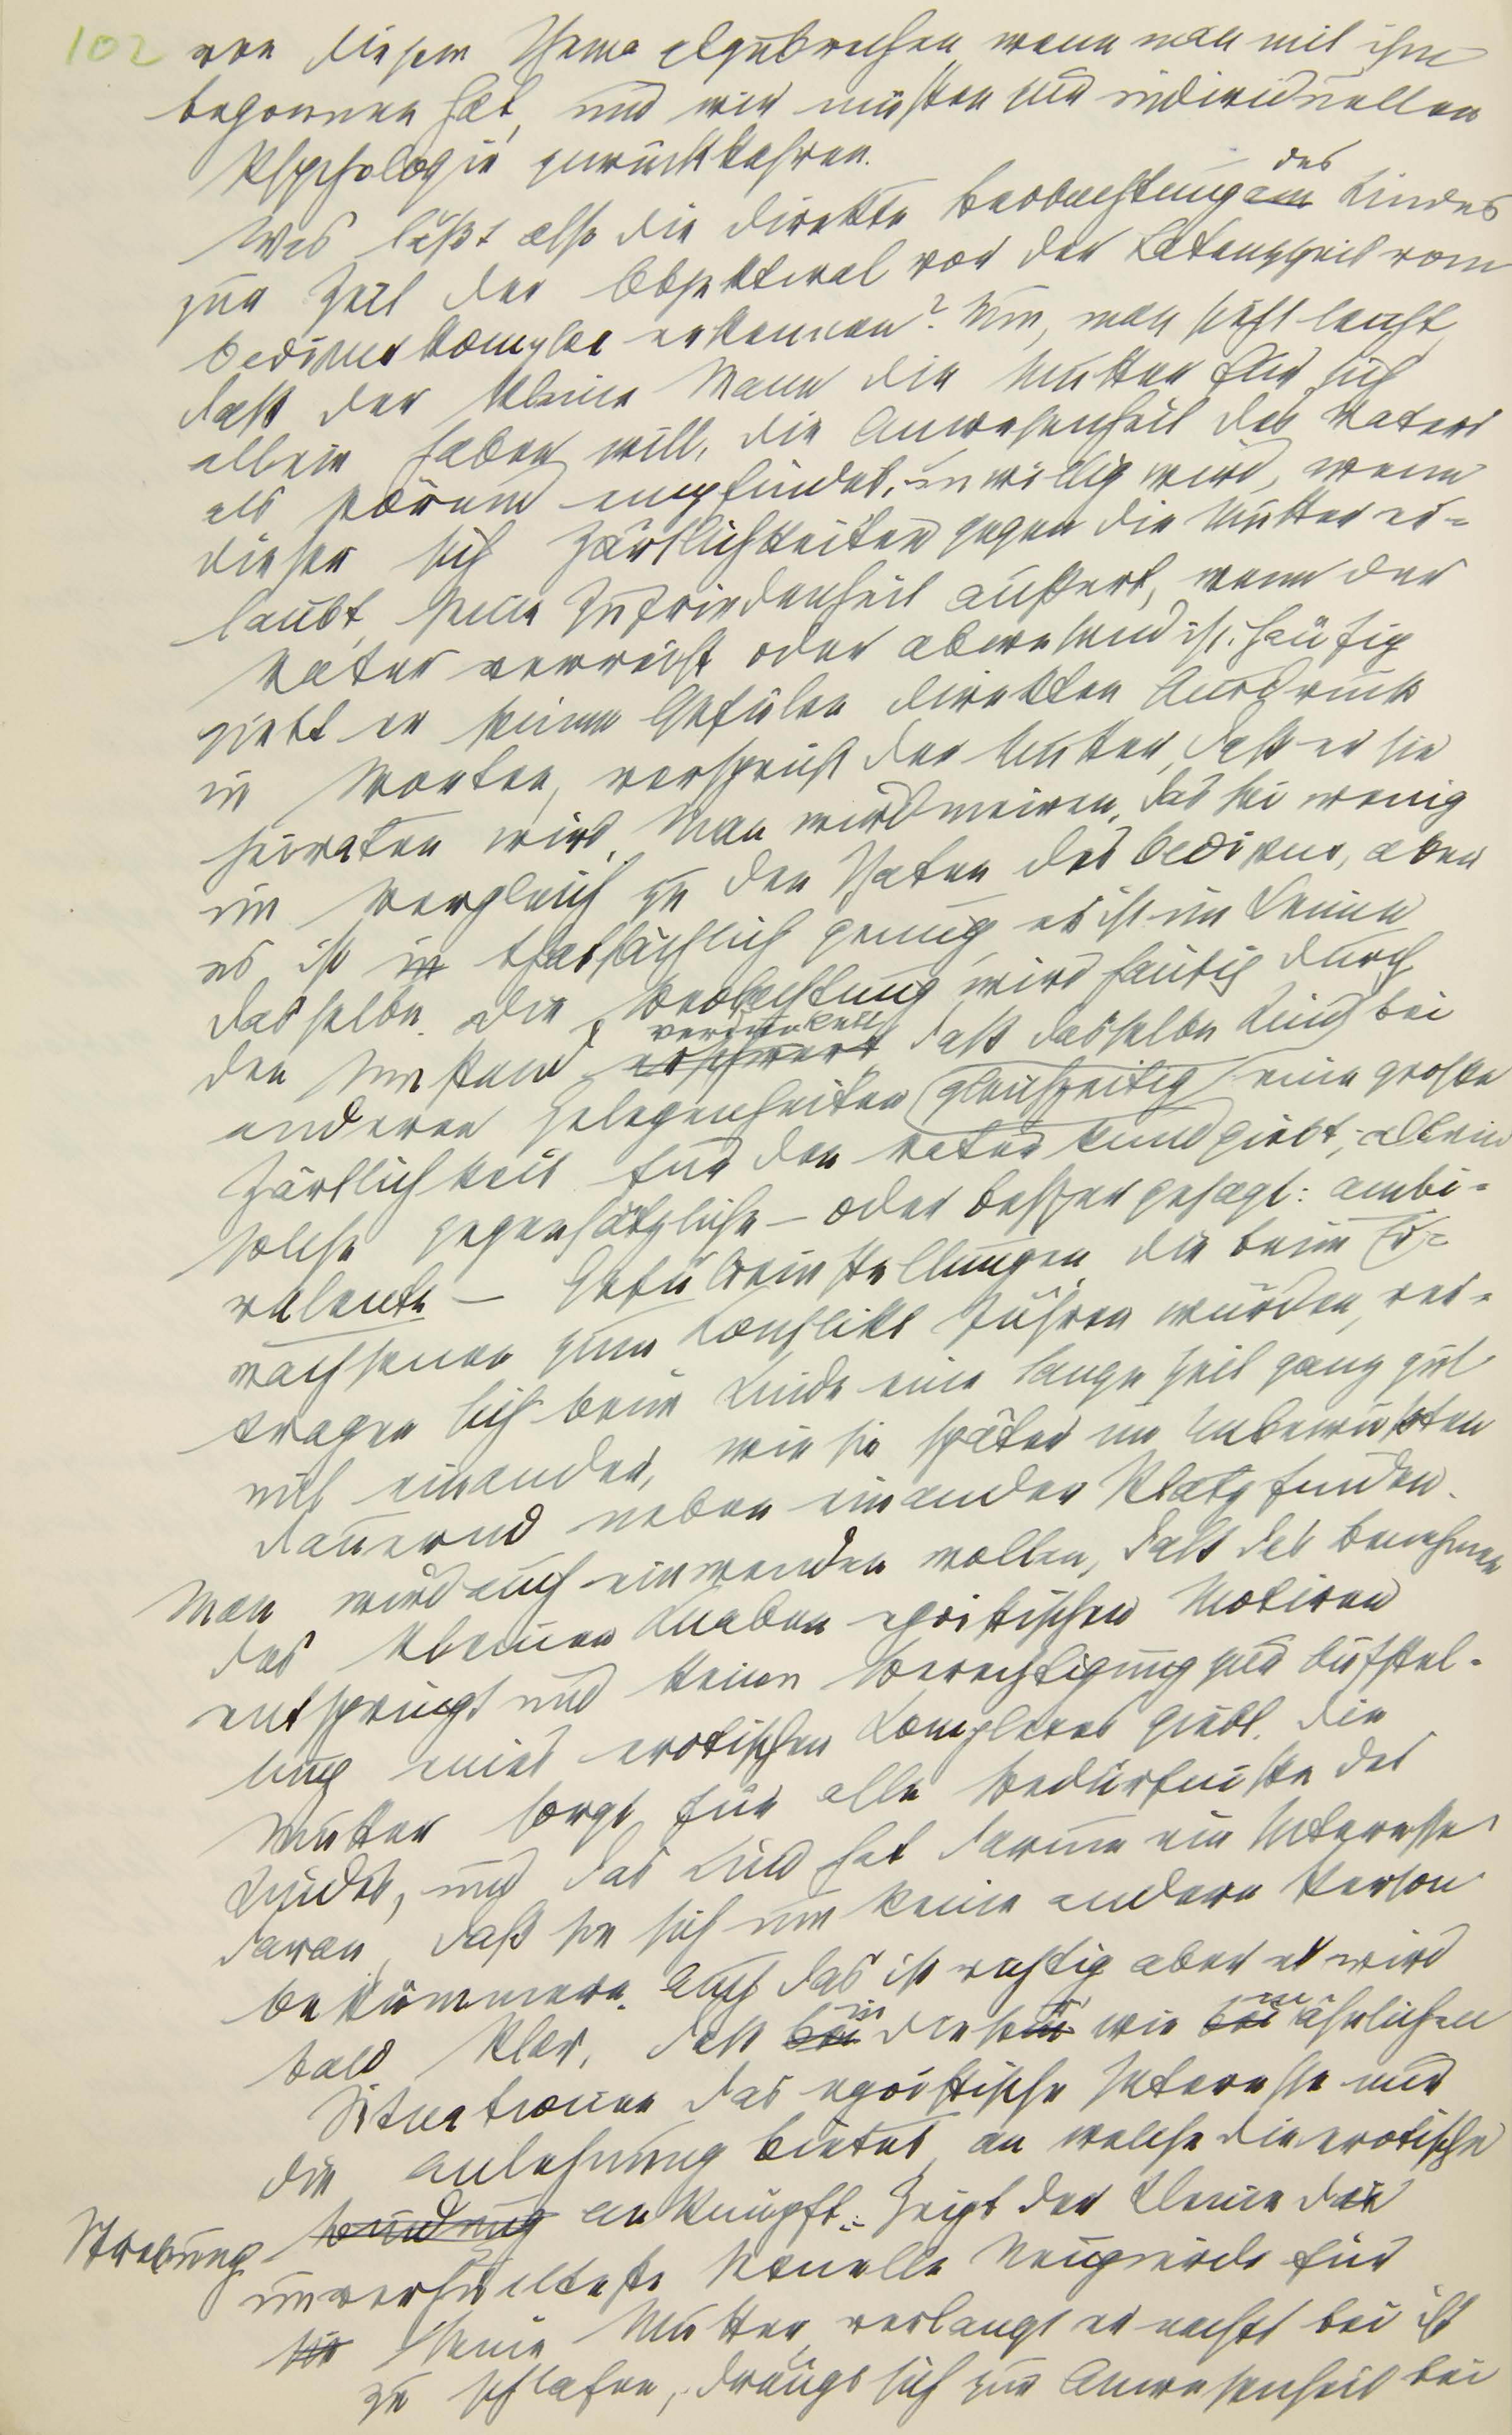 102 von diesem Thema abzubrechen, wenn man mit ihm
begonnen hat, und wir müssen zur individuellen
Psychologie zurückkehren.
Was läßt also die direkte Beobachtung am des Kindes
zur Zeit der Objektwal vor der Latenzzeit vom
Oedipuskomplex erkennen? Nun, man sieht leicht,
daß der kleine Mann die Mutter für sich
allein haben will, die Anwesenheit des Vaters
als störend empfindet, unwillig wird, wenn
dieser sich Zärtlichkeiten gegen die Mutter er=
laubt, seine Zufriedenheit äußert, wenn der
Vater verreist oder abwesend ist. Häufig
giebt er seinen Gefülen direkten Ausdruck
in Worten, verspricht der Mutter, daß er sie
heiraten wird. Man wird meinen, das sei wenig
im Vergleich zu den Thaten des Oedipus, aber
es ist in thatsächlich genug, es ist im Keime
dasselbe. Die Beobachtung wird häufig durch
den Umstand erschwert verdunkelt, daß dasselbe Kind bei
anderen Gelegenheiten gleichzeitig eine große
Zärtlichkeit für den Vater kundgiebt; allein
solche gegensätzliche – oder besser gesagt: ambi=
valente – Gefülseinstellungen, die beim Er=
wachsenen zum Konflikt führen würden, ver=
tragen sich beim Kinde eine lange Zeit ganz gut
mit einander, wie sie später im Unbewußten
dauernd neben einander Platz finden.
Man wird auch einwenden wollen, daß das Benehmen
des kleinen Knaben egoistischen Motiven
entspringt und keine Berechtigung zur Aufstel=
lung eines erotischen Komplexes giebt. Die
Mutter sorgt für alle Bedürfnisse des
Kindes, und das Kind hat darum ein Interesse
daran, daß sie sich um keine andere Person
bekümmere. Auch das ist richtig, aber es wird
bald klar, daß bei in dieser wie bei in ähnlichen
Situationen das egoistische Interesse nur
die Anlehnung bietet, an welche die erotische
Strebung Bindung anknüpft. Zeigt der Kleine die
unverhüllteste sexuelle Neugierde für
die seine Mutter, verlangt er nachts bei ihr
zu schlafen, drängt sich zur Anwesenheit bei